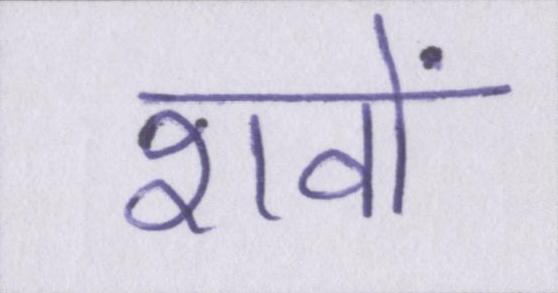 शवों